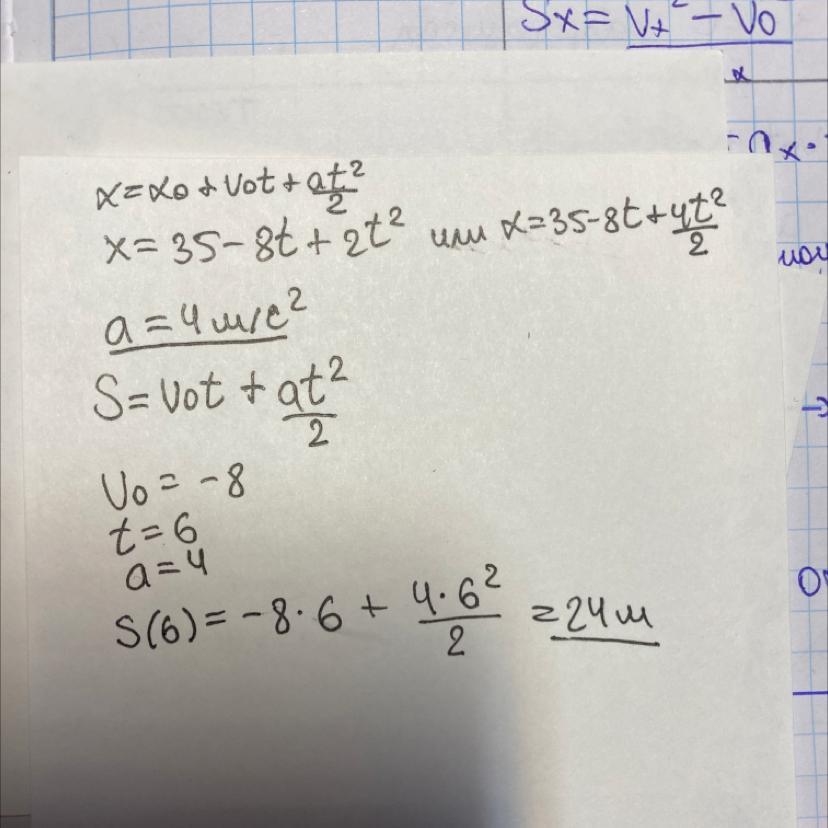 Sx = Vx² - V0
x
= ax ·
x = x0 + V0t + at²/2
x = 35 - 8t + 2t² или x = 35 - 8t + 4t²/2
a = 4 м/с²
S = V0t + at²/2
V0 = -8
t = 6
a = 4
S(6) = -8 · 6 + 4 · 6²/2 = 24 м